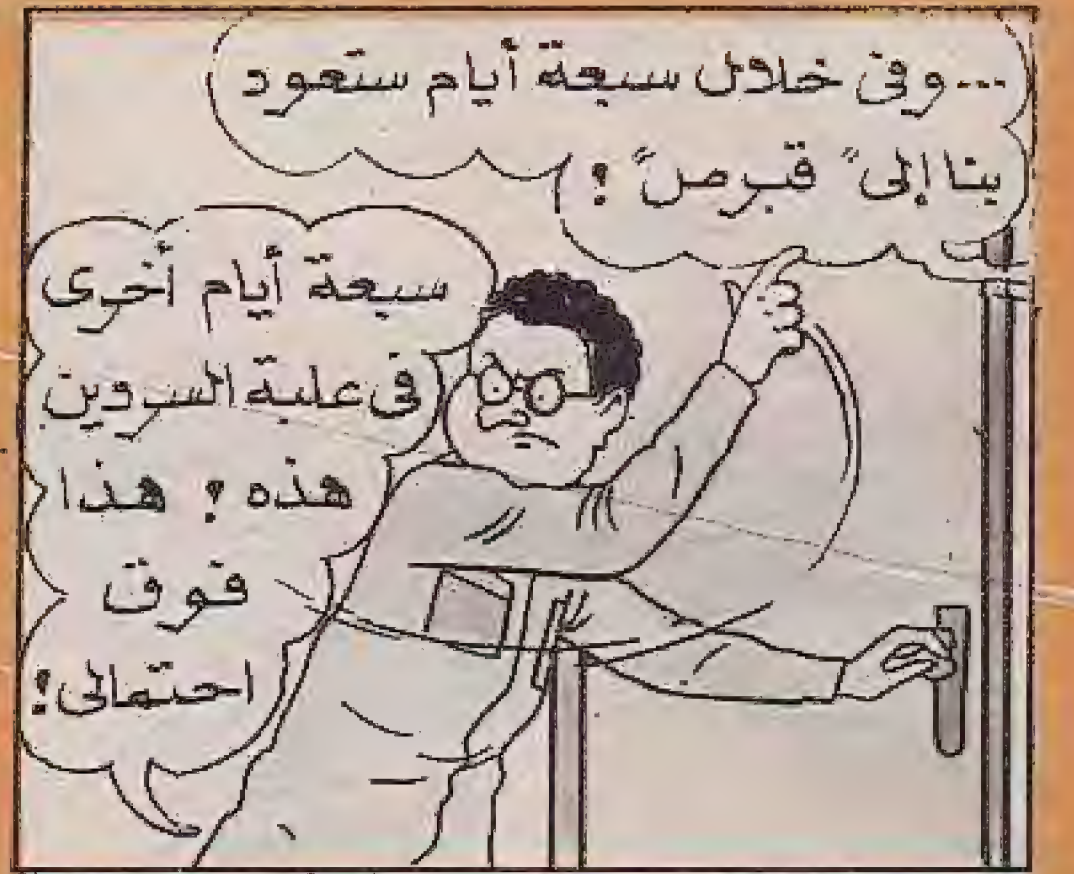 ...وفى خلال سبعة أيام ستعود
بنا إلى "قبرص" !
سبعة أيام أخرى
فى علبة السردين
هذه ! هذا
فوق
احتمالى !